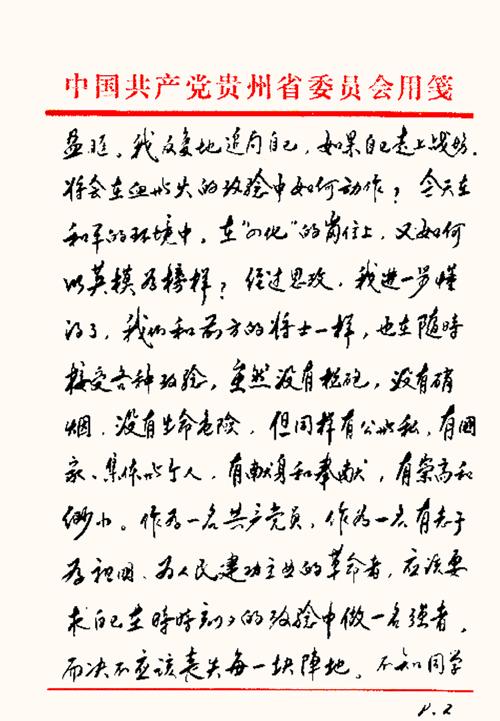 中国共产党贵州省委员会用笺
盈眶。我反复地追问自己，如果自己走上战场，
将会在血与火的考验中如何动作？今天在
和平的环境中，在“四化”的岗位上，又如何
以英模为榜样？经过思考，我进一步懂
得了，我们和前方的将士一样，也在随時
接受各种考验，虽然没有枪砲，没有硝
烟，没有生命危险，但同样有公与私，有國
家、集体与个人，有献身和奉献，有崇高和
渺小。作为一名共产党员，作为一名有志于
为祖國、为人民建功立业的革命者，应该要
求自己在時時刻刻的考验中做一名强者，
而决不应该丧失每一块陣地。不知同学
P.2